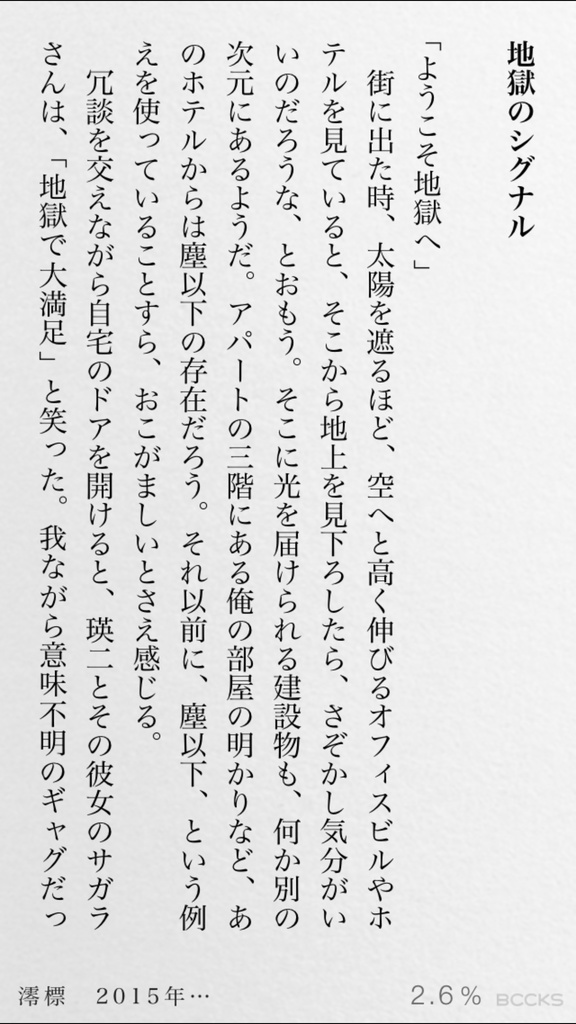 地獄のシグナル
「ようこそ地獄へ」
　街に出た時、太陽を遮るほど、空へと高く伸びるオフィスビルやホ
テルを見ていると、そこから地上を見下ろしたら、さぞかし気分がい
いのだろうな、とおもう。そこに光を届けられる建設物も、何か別の
次元にあるようだ。アパートの三階にある俺の部屋の明かりなど、あ
のホテルからは塵以下の存在だろう。それ以前に、塵以下、という例
えを使っていることすら、おこがましいとさえ感じる。
　冗談を交えながら自宅のドアを開けると、瑛二とその彼女のサガラ
さんは、「地獄で大満足」と笑った。我ながら意味不明のギャグだっ
澪標　2015年…
2.6% BCCKS